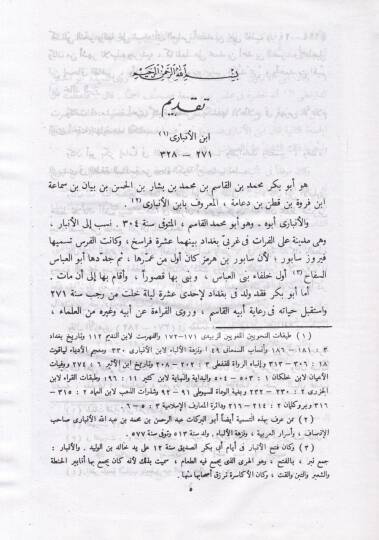 بسم الله الرحمن الرحيم
تقديم
ابن الأنبارى (١)
٢٧١ – ٣٢٨
هو أبو بكر محمد بن القاسم بن محمد بن بشار بن الحسن بن بيان بن سماعة
ابن فروة بن قطن بن دعامة ، المعروف بابن الأنبارى (٢) .
والأنبارى أبوه . وهو أبو محمد القاسم ، المتوفى سنة ٣٠٤ . نسب إلى الأنبار ،
وهى مدينة على الفرات فى غربى بغداد بينهما عشرة فراسخ ، وكانت الفرس تسميها
فيروز سابور ؛ لأن سابور بن هرمز كان أول من عمّرها ، ثم جدّدها أبو العباس
السفاح (٣) أول خلفاء بنى العباس ، وبنى بها قصوراً ، وأقام بها إلى أن مات .
أما أبو بكر فقد ولد فى بغداد لإحدى عشرة ليلة خلت من رجب سنة ٢٧١
واستقبل حياته فى رعاية أبيه القاسم ، وروى القراءة عن أبيه وغيره من العلماء ،
(١) طبقات النحويين اللغويين للزبيدى ١٧١–١٧٢ والفهرست لابن النديم ١١٢ وتاريخ بغداد
٣ : ١٨١ – ١٨٦ وأنساب السمعانى ٤٩ ا ونزهة الألباء لابن الأنبارى ٣٣٠ ومعجم الأدباء لياقوت
١٨ : ٣٠٦ – ٣١٣ وإنباه الرواة للقفطى ٣ : ٢٠١ – ٢٠٨ وتاريخ ابن الأثير ٦ : ٢٧٤ ووفيات
الأعيان لابن خلكان ١ : ٥٠٣ – ٥٠٤ والبداية والنهاية لابن كثير ١١ : ١٩٦ وطبقات القراء لابن
الجزرى ٢ : ٢٣٠ – ٢٣٢ وبغية الوعاة للسيوطى ٩١ – ٩٢ وشذرات الذهب لابن العماد ٢ : ٣١٥ –
٣١٦ وبروكلمان ٢ : ٢١٤ – ٢١٦ ودائرة المعارف الإسلامية ٣ : ٥ – ٦ .
(٢) ممن عرف بهذه التسمية أيضاً أبو البركات عبد الرحمن بن محمد بن عبد الله الأنبارى صاحب
الإنصاف ، وأسرار العربية ، ونزهة الألباء . ولد سنة ٥١٣ وتوفى سنة ٥٧٧ .
(٣) وكان فتح الأنبار فى أيام أبى بكر الصديق سنة ١٢ على يد خالد بن الوليد . والأنبار :
جمع نبر ، بالفتح ، وهو الهرى الذى يجمع فيه الطعام ، سميت بذلك لأنه كان يجمع بها أنابير الحنطة
والشعير والتبن والقت ، وكان الأكاسرة ترزق أصحابها منها .
٥